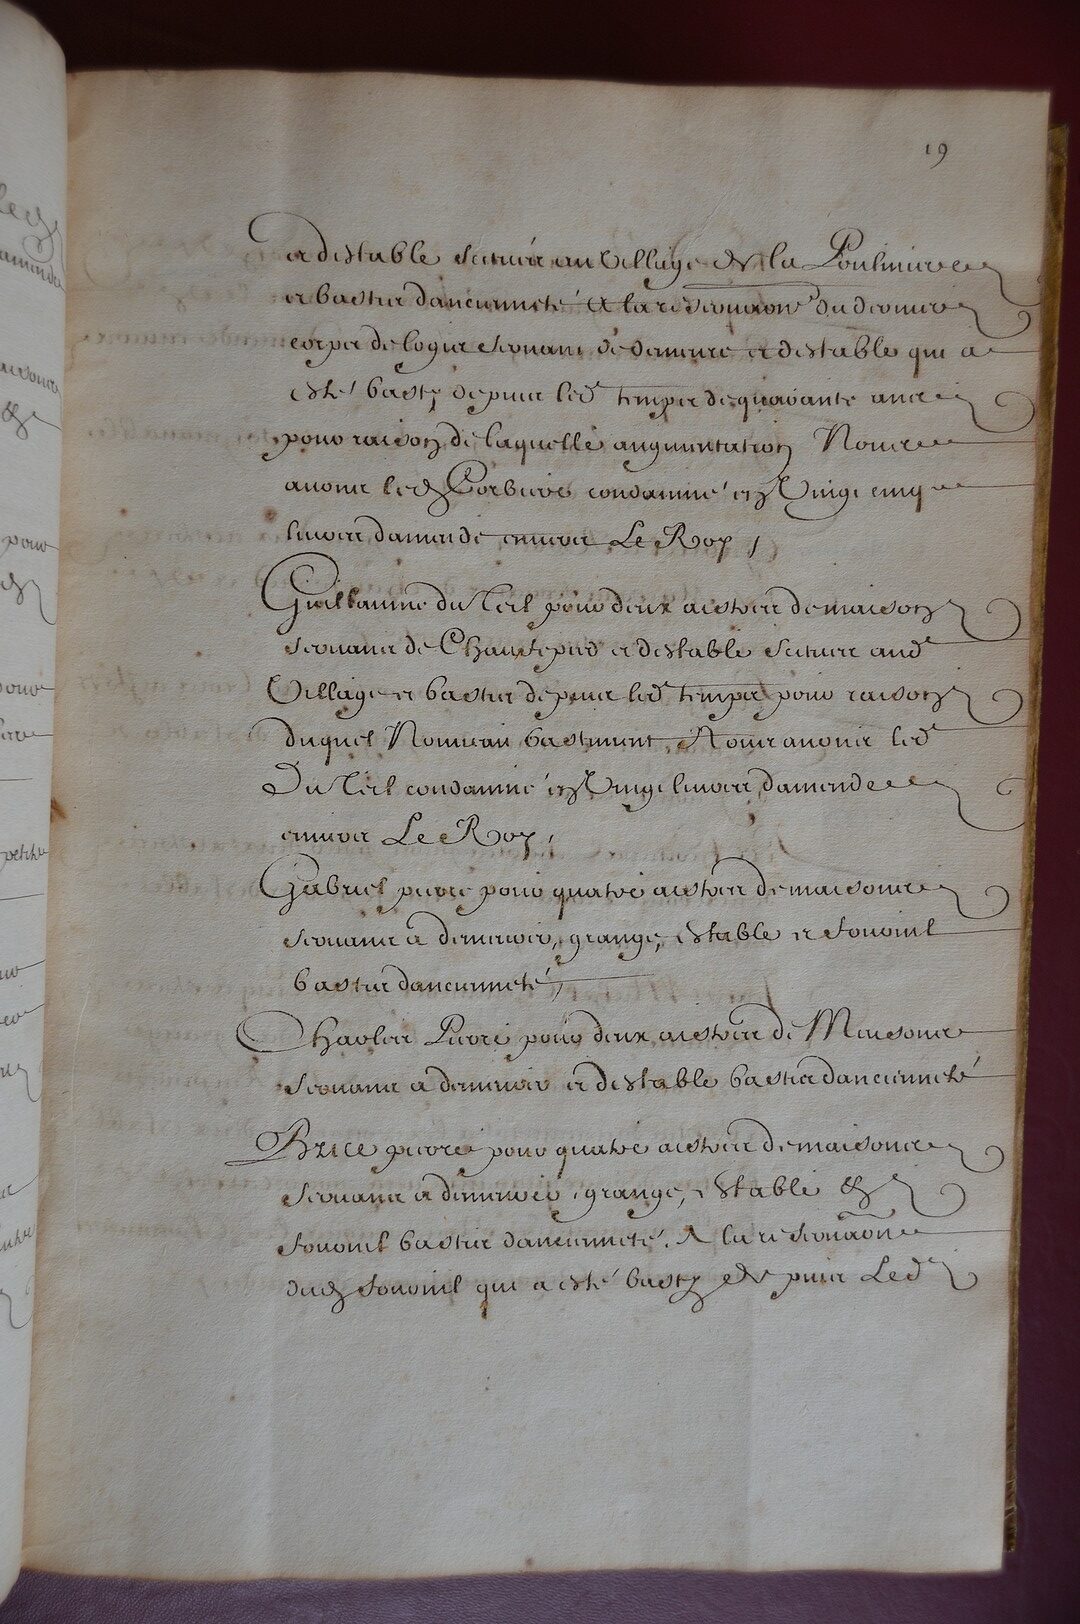 19
et destable scituéz au Village de la Pouliniere
et bastier dancienneté A la reservaon du dernier
corps de logis servant de demeure et destable qui a
esté basty depuis led temps de quarante ans
pour raison de laquelle augmentation Nous
avons led Corbiere condamné en Vingt cinq
livres damende envers Le Roy /
Guillaume du Teil pour deux aistres de maison
servans de Chaufepied et destable scitues aud
Village et bastis depuis led temps pour raison
duquel Nouveau bastiment Nous avons led
Du Teil condamné en Vingt livres damende
envers Le Roy,
Gabriel pierre pour quatre aistres de maisons
servans a demeurer, grange, estable et
bastis dancienneté,
Charles Pierre pour deux aistres de Maisons
servans a demeurer et destable bastis dancienneté
Brice pierre pour quatre aistres de maisons
servans a demeurer, grange, estable &
bastis dancienneté. A la reservaon
dud qui a esté basty depuis Led